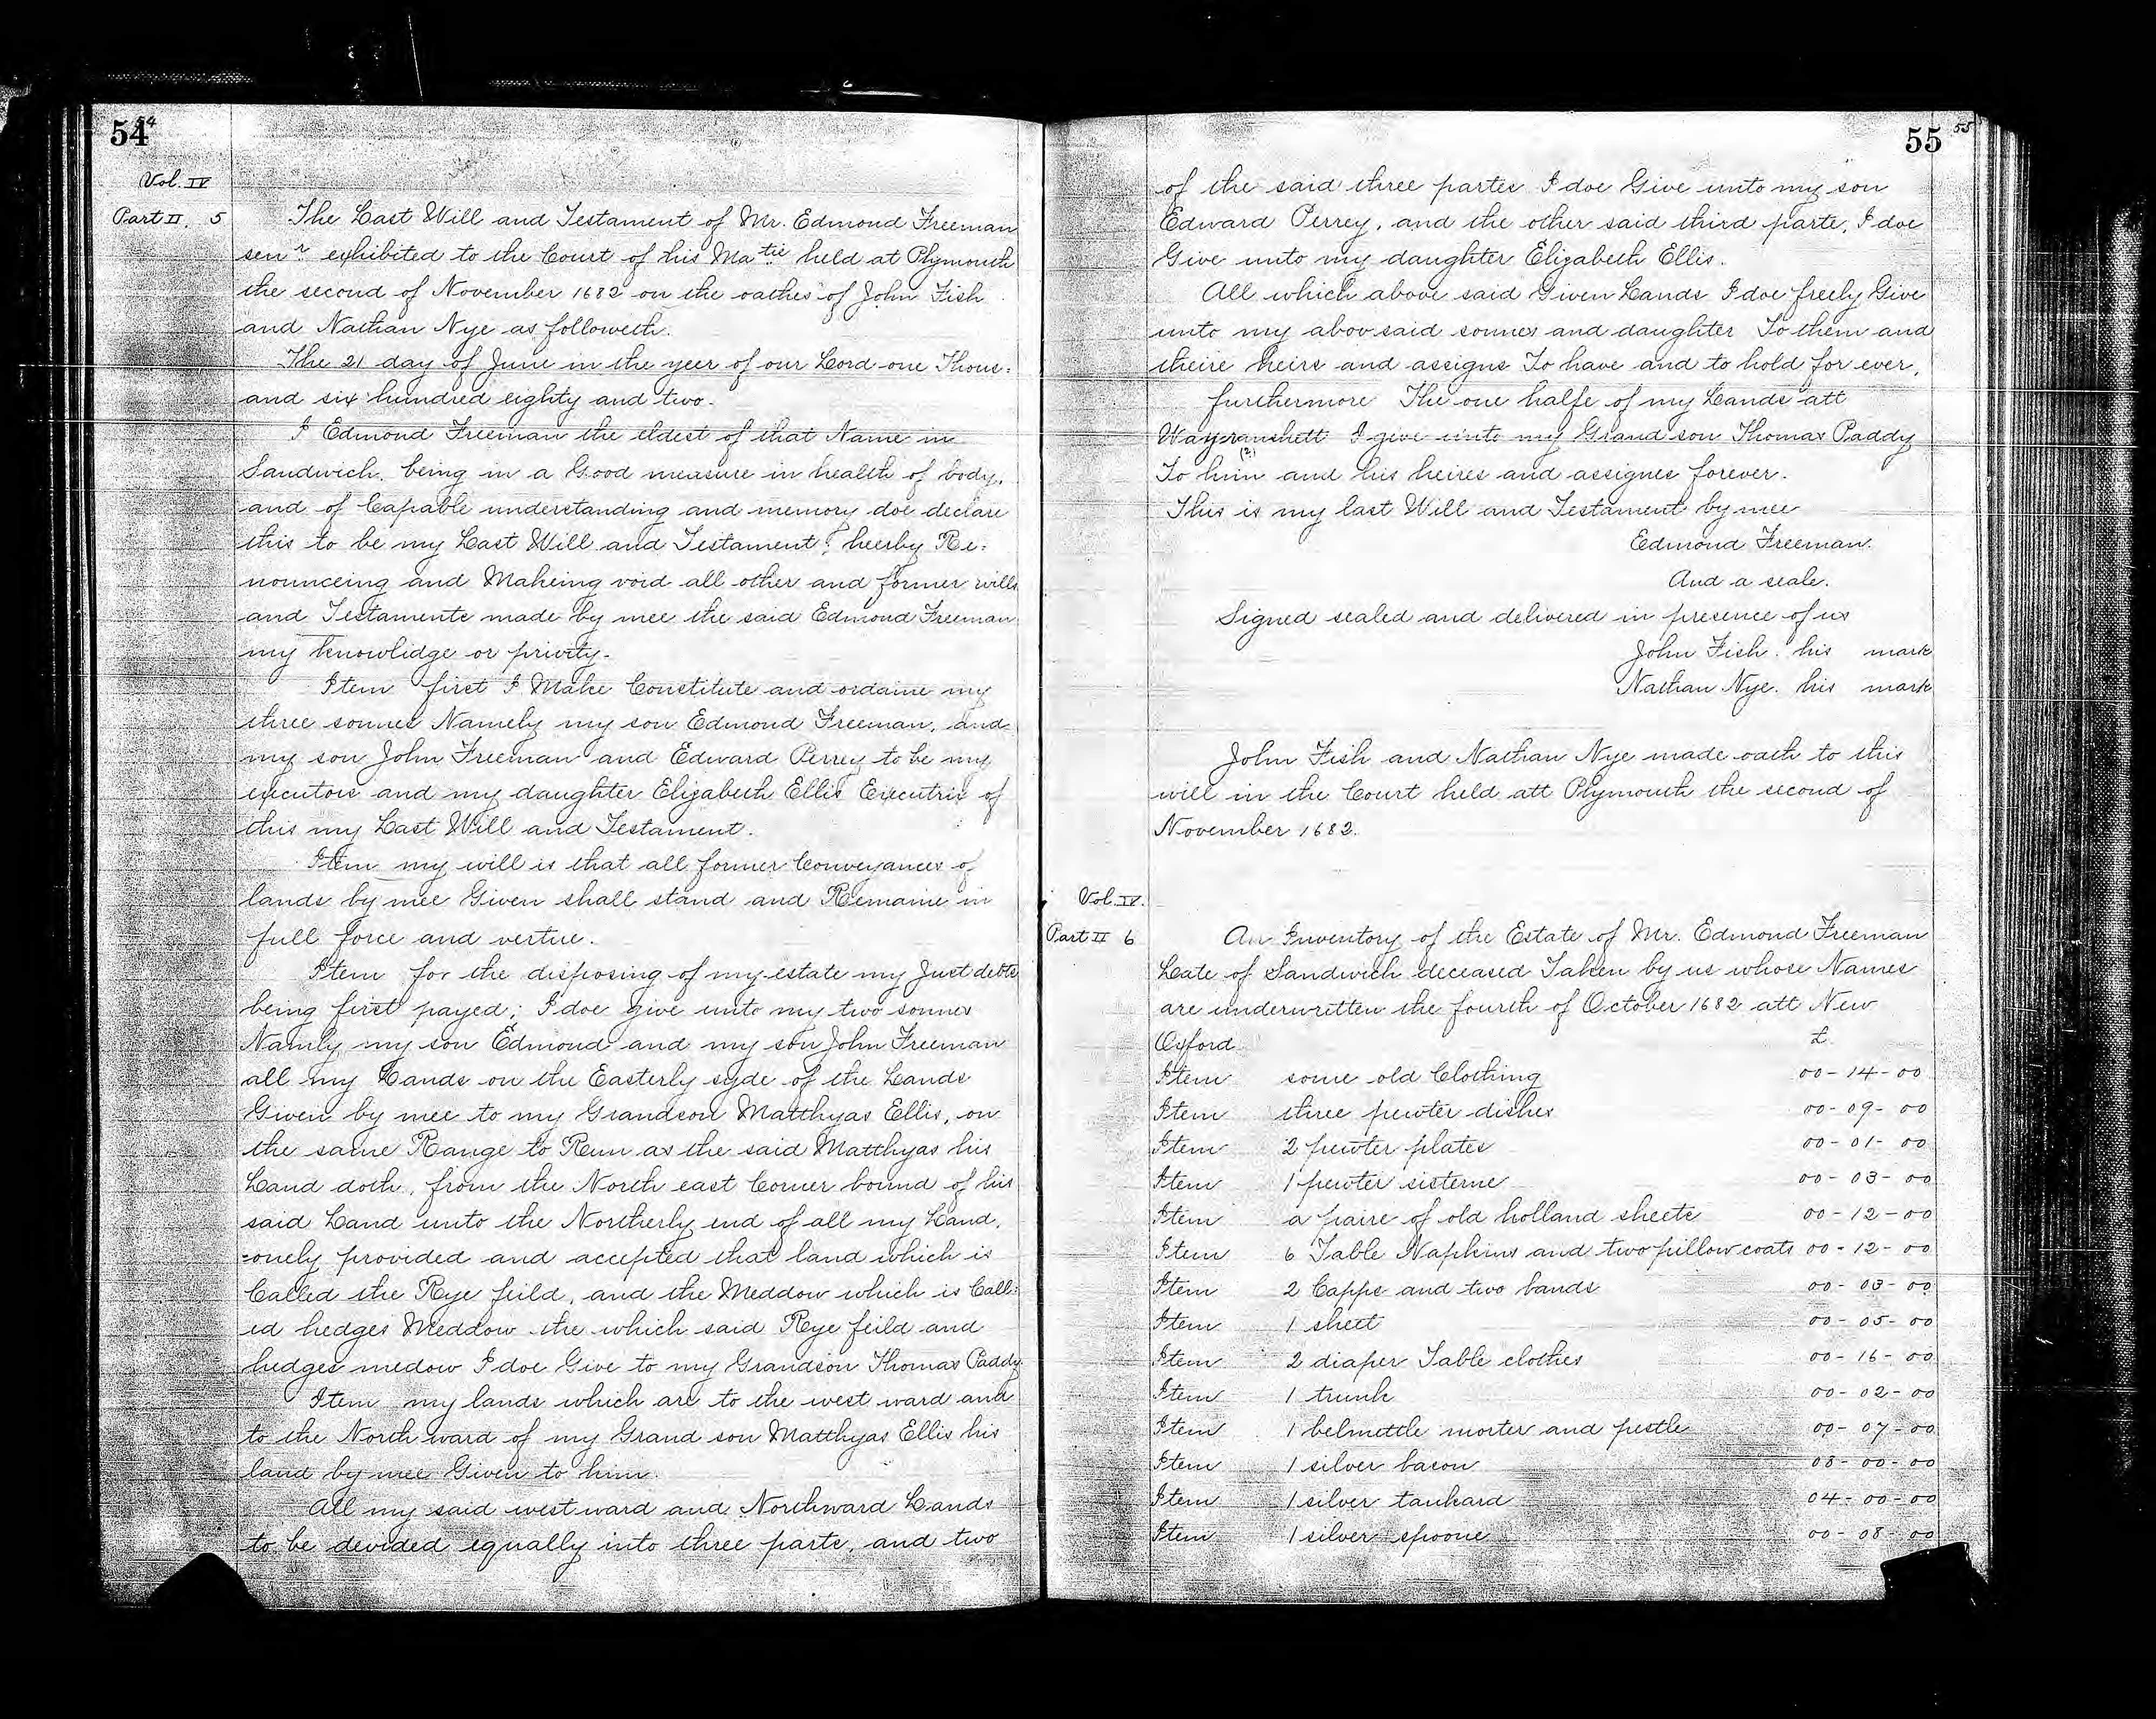 54
54
Vol. IV
Part II. 5
The Last Will and Testament of Mr. Edmond Freeman
senr exhibited to the Court of his Matie held at Plymouth
the second of November 1682 on the oathes of John Fish
and Nathan Nye as followeth.
The 21 day of June in the yeer of our Lord one Thous:
and six hundred eighty and two.
I Edmond Freeman the eldest of that Name in
Sandwich. being in a Good measure in health of body.
and of Capable understanding and memory doe declare
this to be my Last Will and Testament; heerby Re:
nounceing and Makeing void all other and former wills
and Testaments made by mee the said Edmond Freeman
my knowlidge or privity.
Item first I Make Constitute and ordaine my
three sonnes Namely my son Edmond Freeman, and
my son John Freeman and Edward Perrey to be my
executors and my daughter Elizabeth Ellis Executrix of
this my Last Will and Testament.
Item my will is that all former Conveyances of
lands by mee Given shall stand and Remaine in
full force and vertue.
Item for the disposing of my estate my Just debts
being first payed; I doe give unto my two sonnes
Namly my son Edmond and my son John Freeman
all my Lands on the Easterly syde of the Lands
Given by mee to my Grandson Matthyas Ellis, on
the same Range to Run as the said Matthyas his
Land doth, from the North east Corner bound of his
said Land unto the Northerly end of all my Land,
onely provided and accepted that land which is
Called the Rye feild, and the Meddow which is Call:
ed hedges Meddow the which said Rye feild and
hedges medow I doe Give to my Grandson Thomas Paddy.
Item my lands which are to the west ward and
to the North ward of my Grand son Matthyas Ellis his
land by mee Given to him.
All my said westward and Northward Lands
to be devided equally into three parts, and two
55
55
of the said three partes I doe Give unto my son
Edward Perrey, and the other said third parte, I doe
Give unto my daughter Elizabeth Ellis.
All which above said Given Lands I doe freely Give
unto my abovsaid sonnes and daughter To them and
theire heirs and assigns To have and to hold for ever,
furthermore The one halfe of my Lands att
I give unto my Grand son Thomas Paddy
(?)
To him and his heires and assignes forever.
This is my last Will and Testament by mee
Edmond Freeman.
And a seale.
Signed sealed and delivered in presence of us
John Fish. his mark
Nathan Nye. his mark
John Fish and Nathan Nye made oath to this
will in the Court held att Plymouth the second of
November 1682.
Vol. IV.
Part II 6
An Inventory of the Estate of Mr. Edmond Freeman
Late of Sandwich deceased Taken by us whose Names
are underwritten the fourth of October 1682 att New
Oxford £
Item some old Clothing 00-14-00
Item three pewter dishes 00-09-00
Item 2 pewter plates 00-01-00
Item 1 pewter sisterne 00-03-00
Item a paire of old holland sheets 00-12-00
Item 6 Table Napkins and two pillow coats 00-12-00
Item 2 Capps and two bands 00-03-00
Item 1 sheet 00-05-00
Item 2 diaper Table clothes 00-16-00
Item 1 trunk 00-02-00
Item 1 belmettle morter and pestle 00-07-00
Item 1 silver bason 03-00-00
Item 1 silver tankard 04-00-00
Item 1 silver spoone 00-08-00